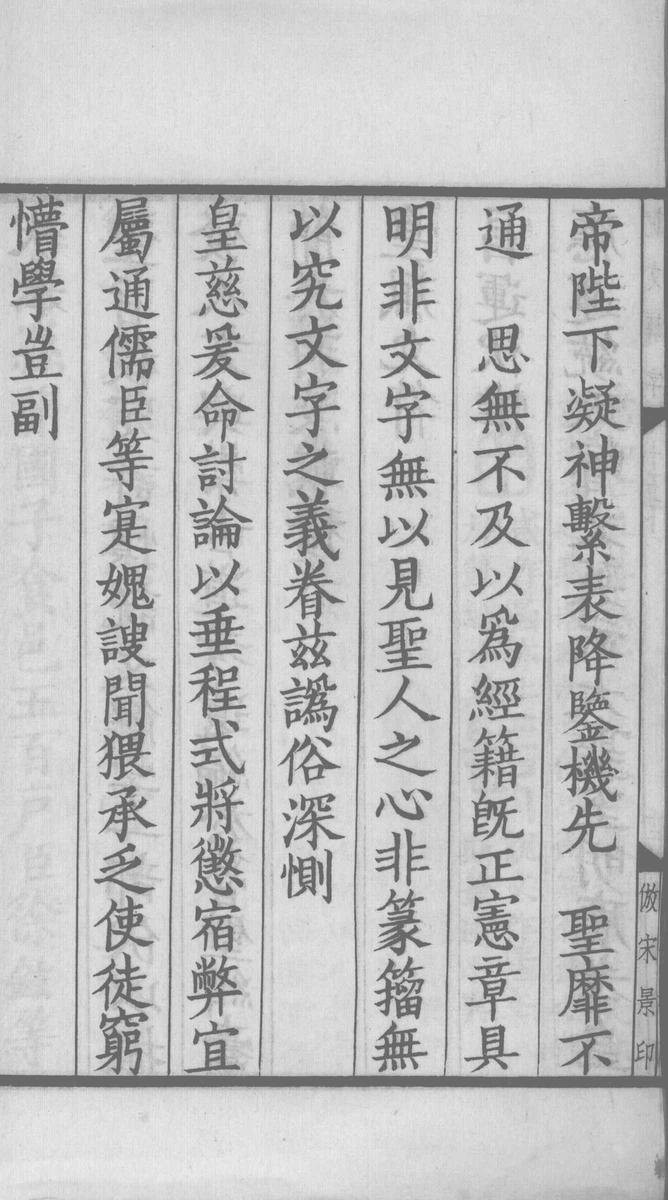 帝陛下凝神繫表降鑒機先　聖靡不
通　思無不及以爲經籍既正憲章具
明非文字無以見聖人之心非篆籀無
以究文字之義眷兹譌俗深惻
皇慈爰命討論以垂程式將懲宿弊宜
屬通儒臣等寔媿謏聞猥承乏使徒窮
懵學豈副
倣宋景印